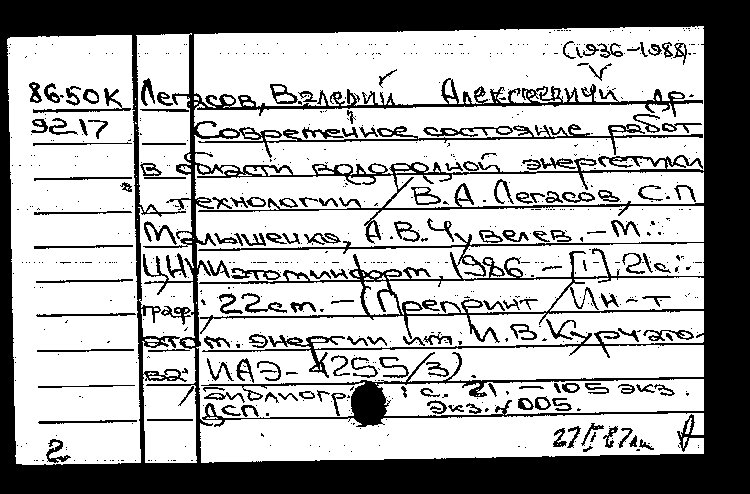 (1936-1988)
86-50К Легасов, Валерий Алексеевич и др.
92.17 Современное состояние работ
в области водородной энергетики
и технологии / В.А. Легасов, С.П.
Малышенко, А.В. Чувелев. - М.:
ЦНИИатоминформ, 1986. - [1], 21с.:
граф.; 22см. - (Препринт / Ин-т
атом. энергии им. И.В. Курчато-
ва; ИАЭ-4255/3).
Библиогр.: с. 21. - 105 экз.
ДСП. Экз. № 005.
2 27/I 87